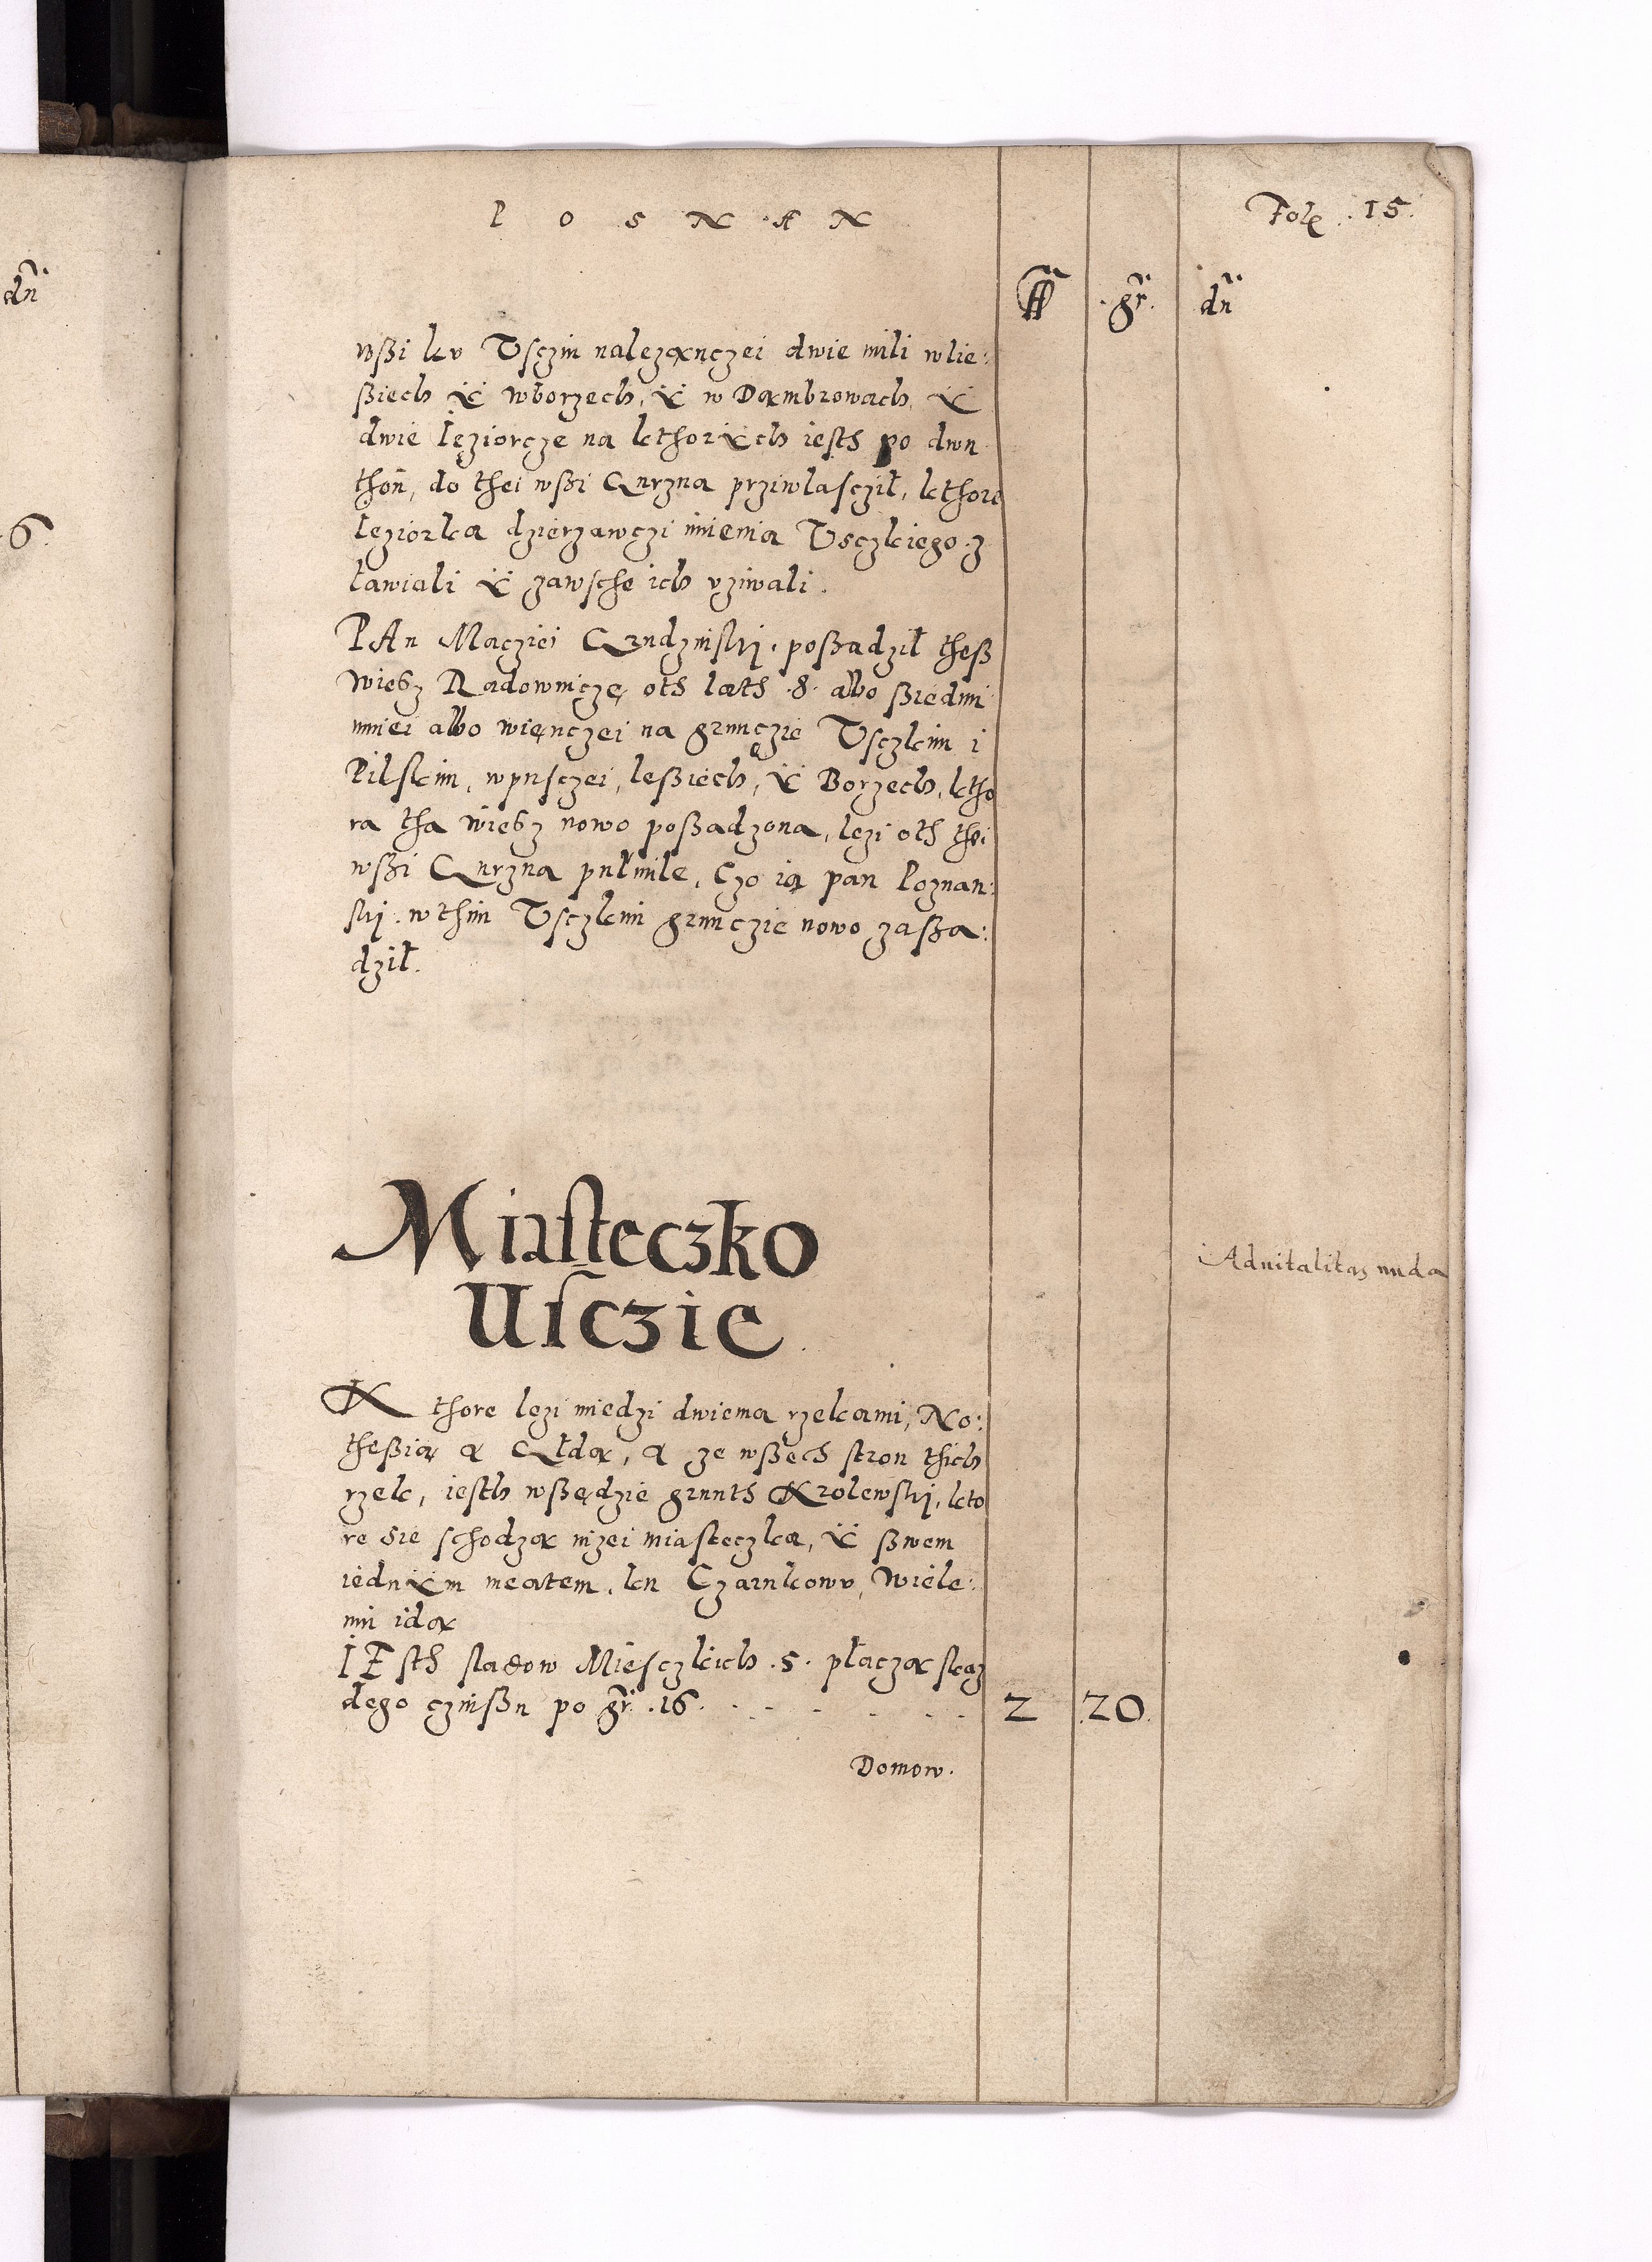 dn̄
6
P O S N A N
Fol. 15.
ff gr. dn̄
wßi kv Usczin należąnczei dwie mili w lie:
ßiech Ÿ w borzech, Ÿ w Dąmbrowach, Ÿ
dwie Ieziorcze na kthorÿch iesth po dwu
thoń, do thei wßi Qurzna prziwlascził, kthore
Ieziorka dzierzawczi imienia Usczkiego z
lawiali Ÿ zawsche ich vziwali.
PAn Macziei Grudzinski, poßadził theß
wiesz Radownicze oth lath .8. albo ßiedmi
mniei albo więnczei na grunczie Usczkim i
Pilskim, w pusczei, leßiech, Ÿ Borzech, ktho
ra tha wiesz nowo poßadzona, lezi oth thei
wßi Qurzna pułmile, Czo ią pan Poznan:
ski w thim Usczkim grunczie nowo zaßa:
dził.
Miasteczko
Usczie
Adnitalitas nuda
Kthore lezi miedzi dwiema rzekami, No:
theßią a Głdą, a ze wßech stron thich
rzek, iesth wßędzie grunth Krolewski, kto
re sie schodzą nizei miasteczka, Ÿ ßwem
iednÿm meatem, ku Czarnkowv, Wiele:
mi idą
IEsth sladow Miesczkich .5. płaczą s kaz
dego czinßu po gr. .16. 2 20.
Domow.